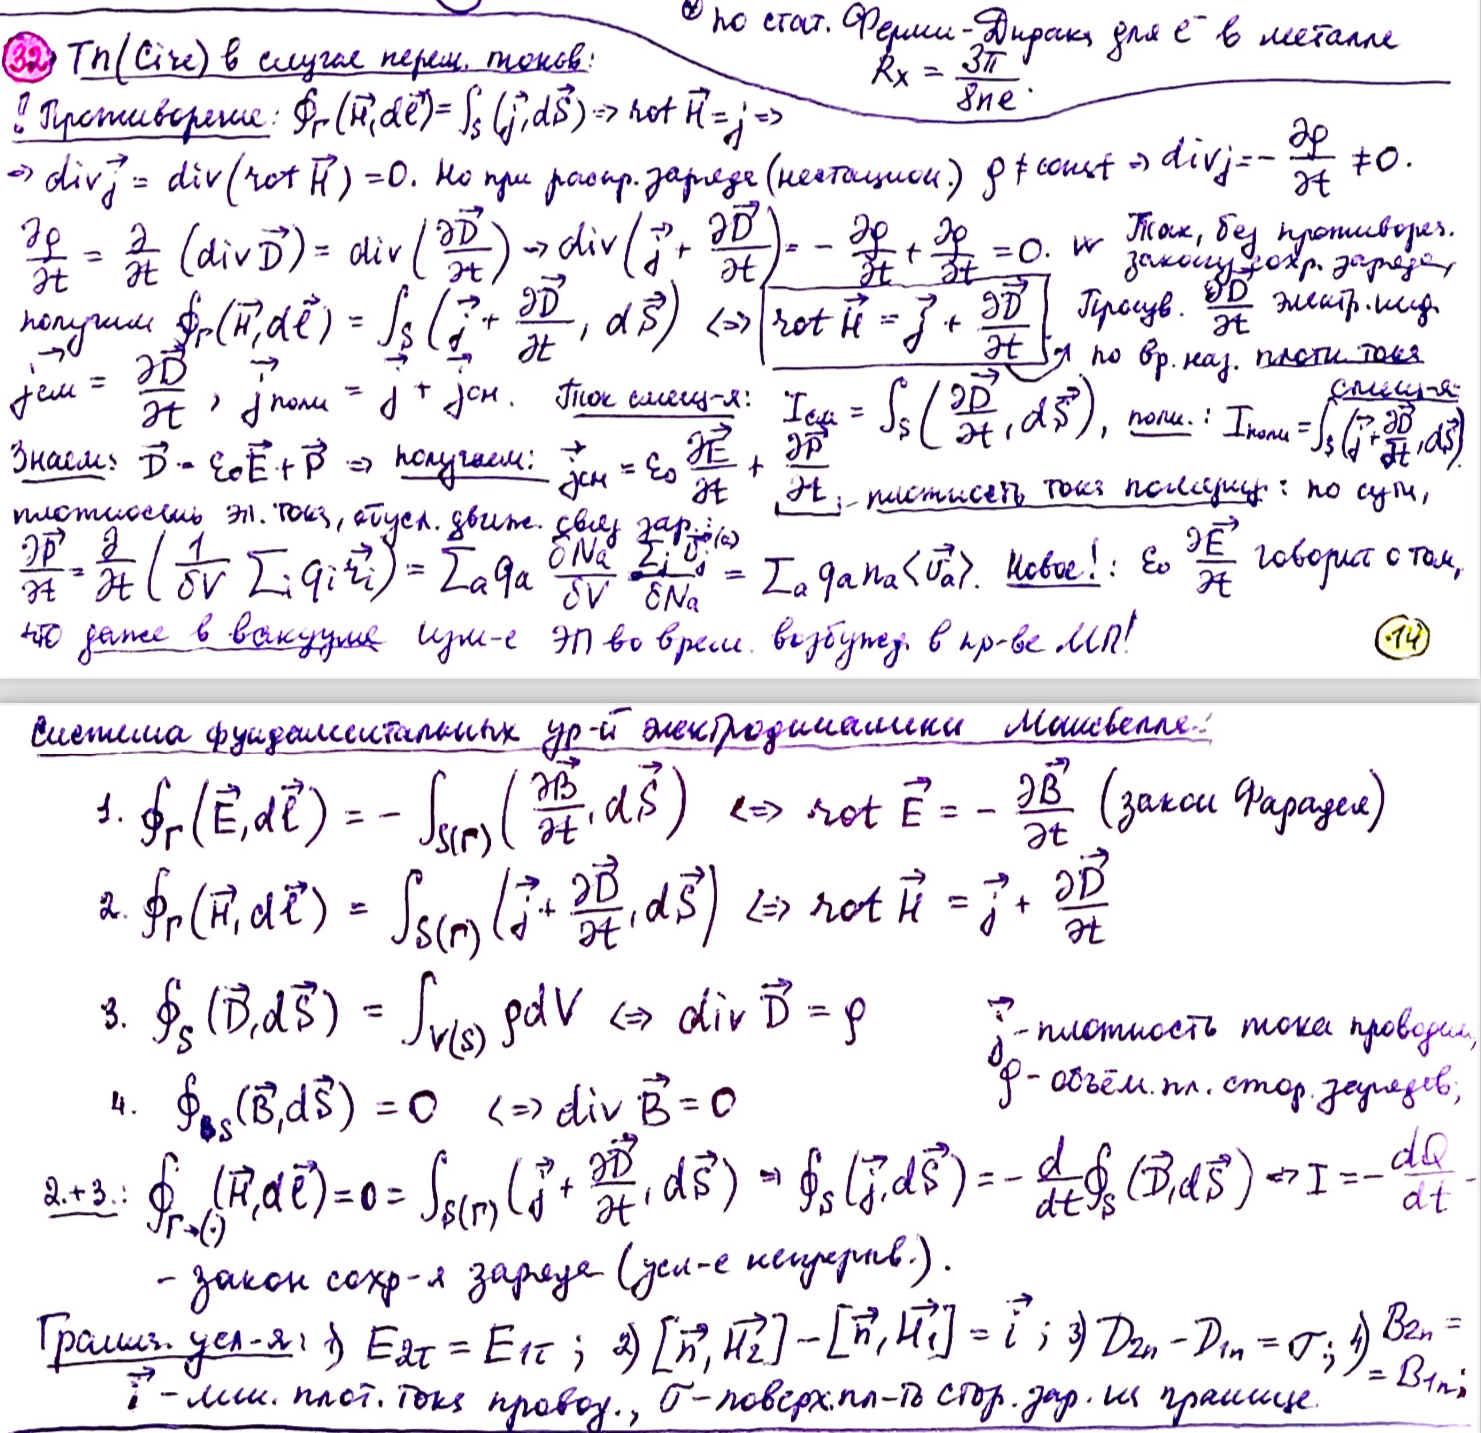 ⊗ по стат. Ферми-Дирака для e⁻ в металле
Rx = 3π/8ne.
32 Тп(Circ) в случае перем. токов:
! Противоречие: ∮_Γ(H⃗,dℓ⃗)=∫_S(j⃗,dS⃗)=> rot H⃗ = j =>
=> div j⃗ = div(rot H⃗)=0. Но при распр. заряда (нестацион.) ρ≠const => div j = - ∂ρ/∂t ≠ 0.
∂ρ/∂t = ∂/∂t (div D⃗) = div(∂D⃗/∂t) → div(j⃗ + ∂D⃗/∂t) = - ∂ρ/∂t + ∂ρ/∂t = 0. Так, без противореч.
закону сохр. заряда,
получим ∮_Γ(H⃗,dℓ⃗) = ∫_S(j⃗ + ∂D⃗/∂t, dS⃗) <=> rot H⃗ = j⃗ + ∂D⃗/∂t Произв. ∂D⃗/∂t электр. инд.
по вр. наз. плотн. тока смещ-я.
j⃗см = ∂D⃗/∂t, j⃗полн = j⃗ + j⃗см. Ток смещ-я: Iсм = ∫_S(∂D⃗/∂t, dS⃗), полн.: Iполн = ∫_S(j⃗+∂D⃗/∂t, dS⃗).
Знаем: D⃗ = ε₀E⃗ + P⃗ => получаем: j⃗см = ε₀ ∂E⃗/∂t + ∂P⃗/∂t - плотность тока поляриз.: по сути,
плотность эл. тока, обусл. движ. связ. зар.:
∂P⃗/∂t = ∂/∂t (1/δV Σᵢ qᵢ r⃗ᵢ) = Σₐ qₐ δNₐ/δV Σⱼ v⃗ⱼ⁽ᵃ⁾/δNₐ = Σₐ qₐ nₐ <v⃗ₐ>. Новое!: ε₀ ∂E⃗/∂t говорит о том,
что даже в вакууме изм-е ЭП во врем. возбужд. в пр-ве МП!
14
Система фундаментальных ур-й электродинамики Максвелла:
1. ∮_Γ(E⃗,dℓ⃗) = - ∫_S(Γ)(∂B⃗/∂t, dS⃗) <=> rot E⃗ = - ∂B⃗/∂t (закон Фарадея)
2. ∮_Γ(H⃗,dℓ⃗) = ∫_S(Γ)(j⃗ + ∂D⃗/∂t, dS⃗) <=> rot H⃗ = j⃗ + ∂D⃗/∂t
3. ∮_S(D⃗,dS⃗) = ∫_V(S) ρdV <=> div D⃗ = ρ
j⃗ - плотность тока проводим,
ρ - объём. пл. стор. зарядов;
4. ∮_S(B⃗,dS⃗) = 0 <=> div B⃗ = 0
2.+3.: ∮_Γ→(·)(H⃗,dℓ⃗) = 0 = ∫_S(Γ)(j⃗ + ∂D⃗/∂t, dS⃗) => ∮_S(j⃗,dS⃗) = - d/dt ∮_S(D⃗,dS⃗) => I = - dQ/dt -
- закон сохр-я заряда (усл-е непрерыв.).
Гранич. усл-я: 1) E₂τ = E₁τ; 2) [n⃗,H⃗₂] - [n⃗,H⃗₁] = i⃗; 3) D₂ₙ - D₁ₙ = σ; 4) B₂ₙ =
= B₁ₙ;
i⃗ - лин. плот. тока провод., σ - поверх. пл-ть стор. зар. на границе.